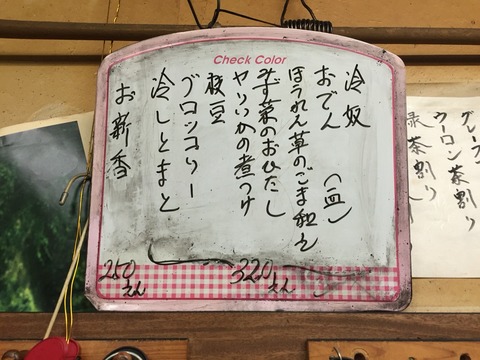 Check Color
冷奴
おでん（一皿）
ほうれん草のごま和え
みず菜のおひたし
ヤリいかの煮つけ
枝豆
ブロッコリー
冷しとまと
お新香
320えん
250えん
ウーロン茶割り
緑茶割り